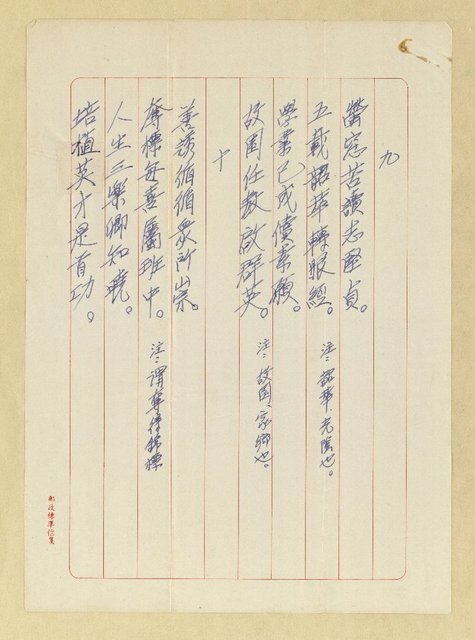 九
螢窓苦讀志堅貞。
五載韶華轉眼經。注：韶華、光陰也。
學業已成償素願。
故園任教啟群英。注：故園、家鄉也。
十
善誘循循眾所崇。
奪標每喜屬班中。注：謂奪得錦標
人生三樂卿知曉。
培植英才是首功。
郵政標準信箋